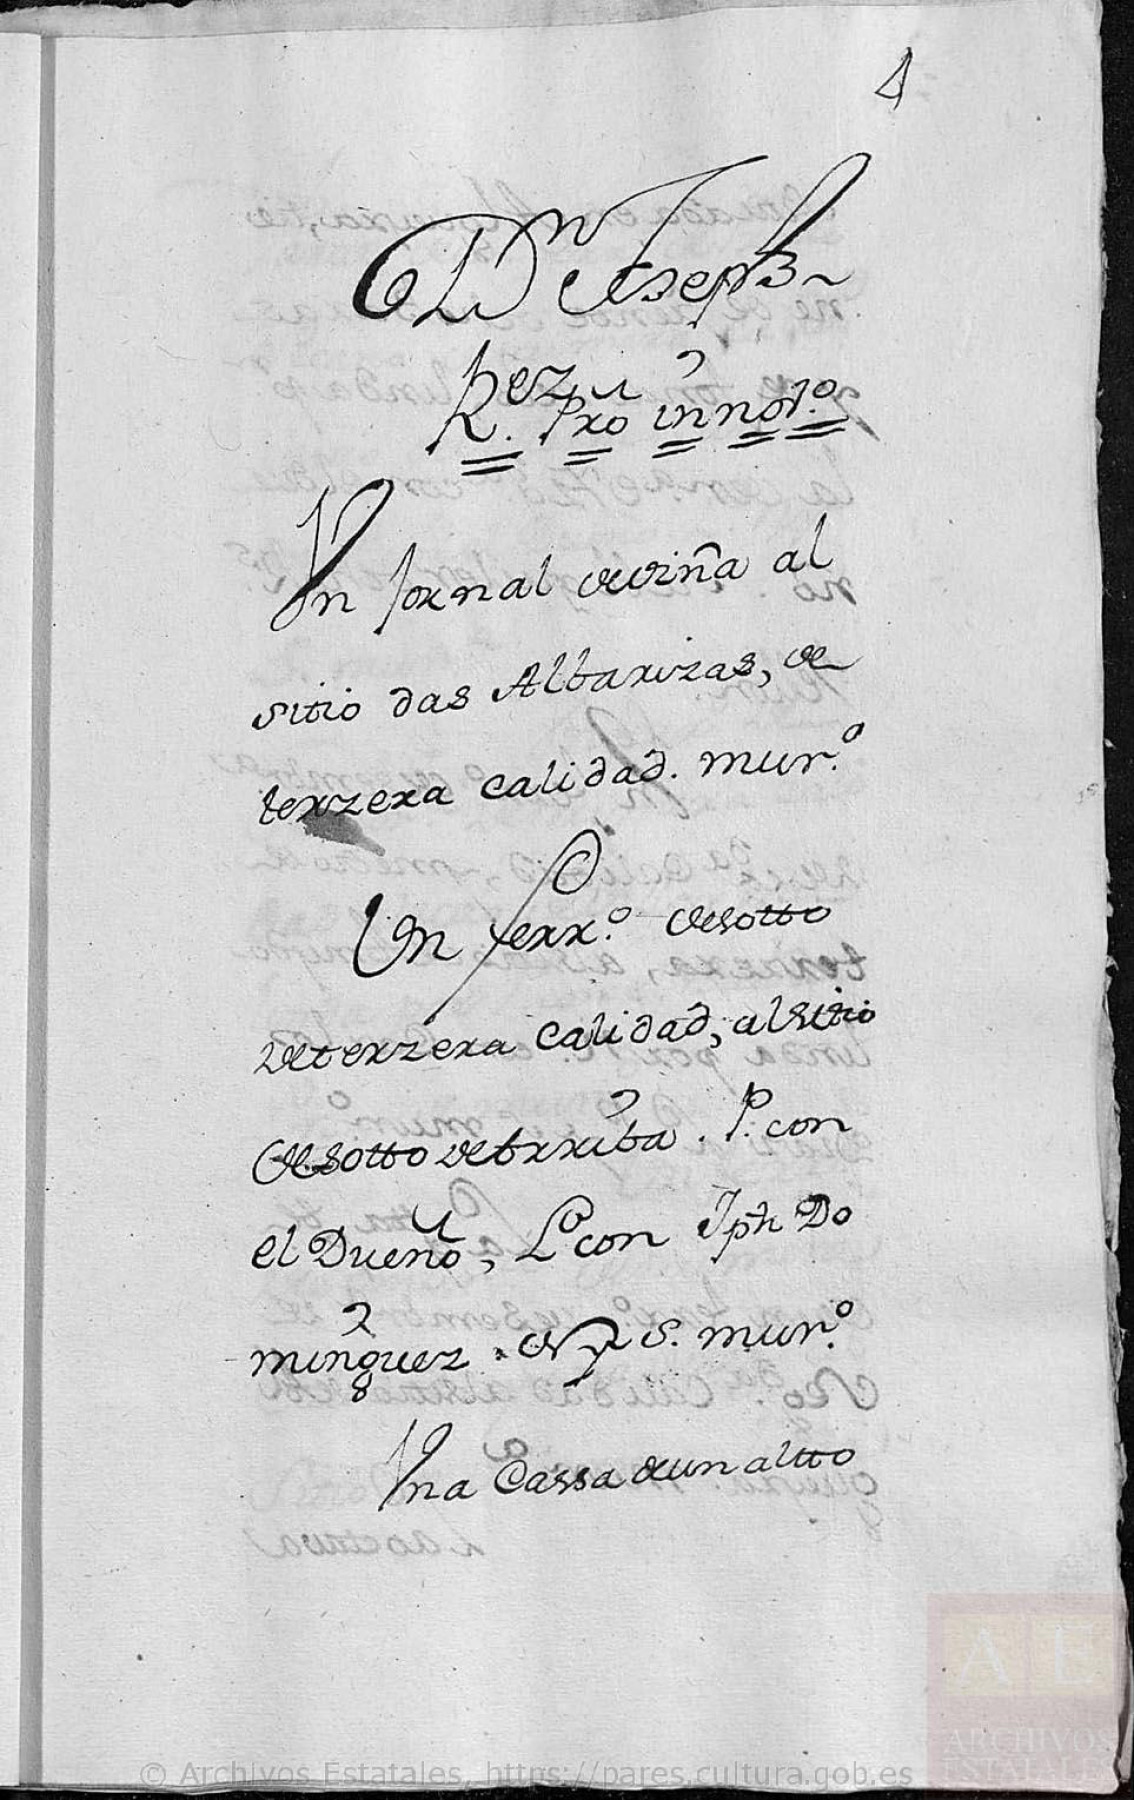 4
Dn Joseph
Rez Prō in nori.o
Vn Jornal de viña al
sitio das Albarizas, de
terzera calidad. mur.o
Vn ferr.o de sotto
de terzera calidad, al sitio
de sotto de Arriba. P. con
el Dueño, L.o con Jph Do
minguez. N y S. mur.o
Vna Cassa de un altto
© Archivos Estatales, https://pares.cultura.gob.es
AE
ARCHIVOS
ESTATALES